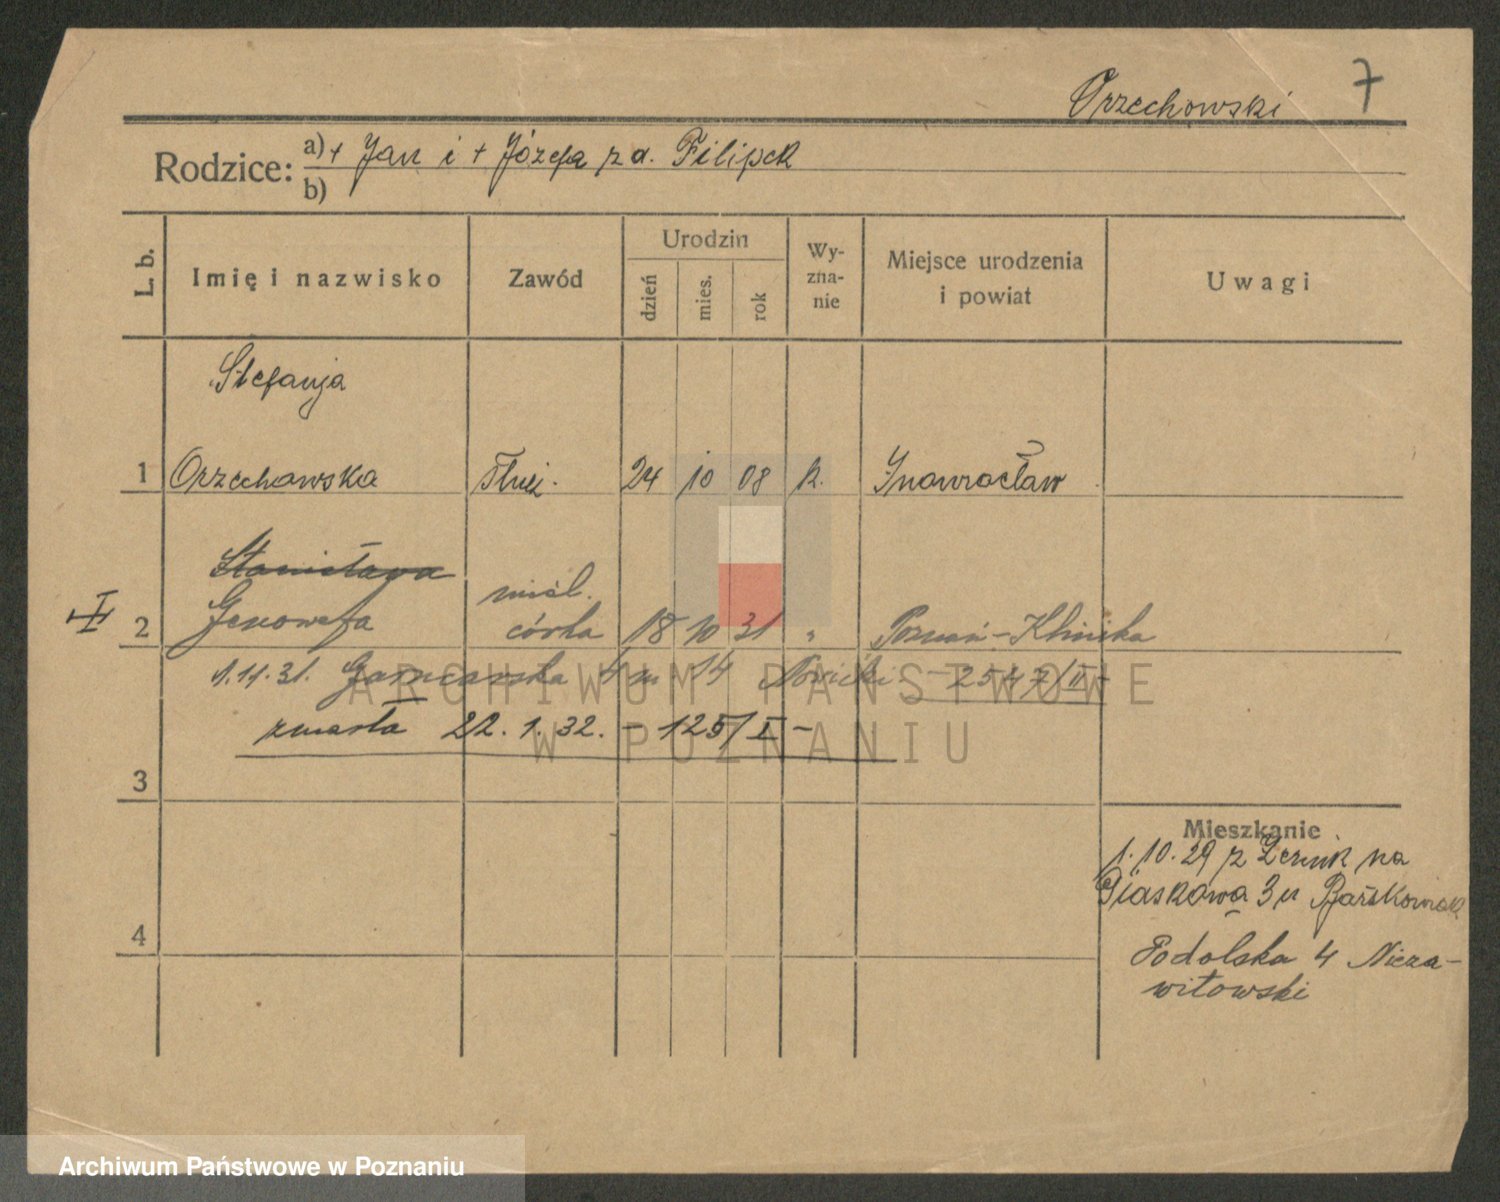 Orzechowski 7
Rodzice: a) + Jan i + Józefa z d. Filipek
b)
L. b. Imię i nazwisko Zawód Urodzin dzień mies. rok Wy-zna-nie Miejsce urodzenia i powiat Uwagi
Stefanja
1 Orzechowska służ. 24 10 08 k. Inowrocław
Stanisława
nieśl.
I 2 Genowefa córka 18 10 31 " Poznań - Klinika
1.11.31. Garncarska 4 m 14 Nowicki - 2547/II -
zmarła 22.1.32. - 125/I -
3
Mieszkanie
1.10.29 z na
3 u
4
Podolska 4 Nieza-
witowski
ARCHIWUM PAŃSTWOWE
W POZNANIU
Archiwum Państwowe w Poznaniu